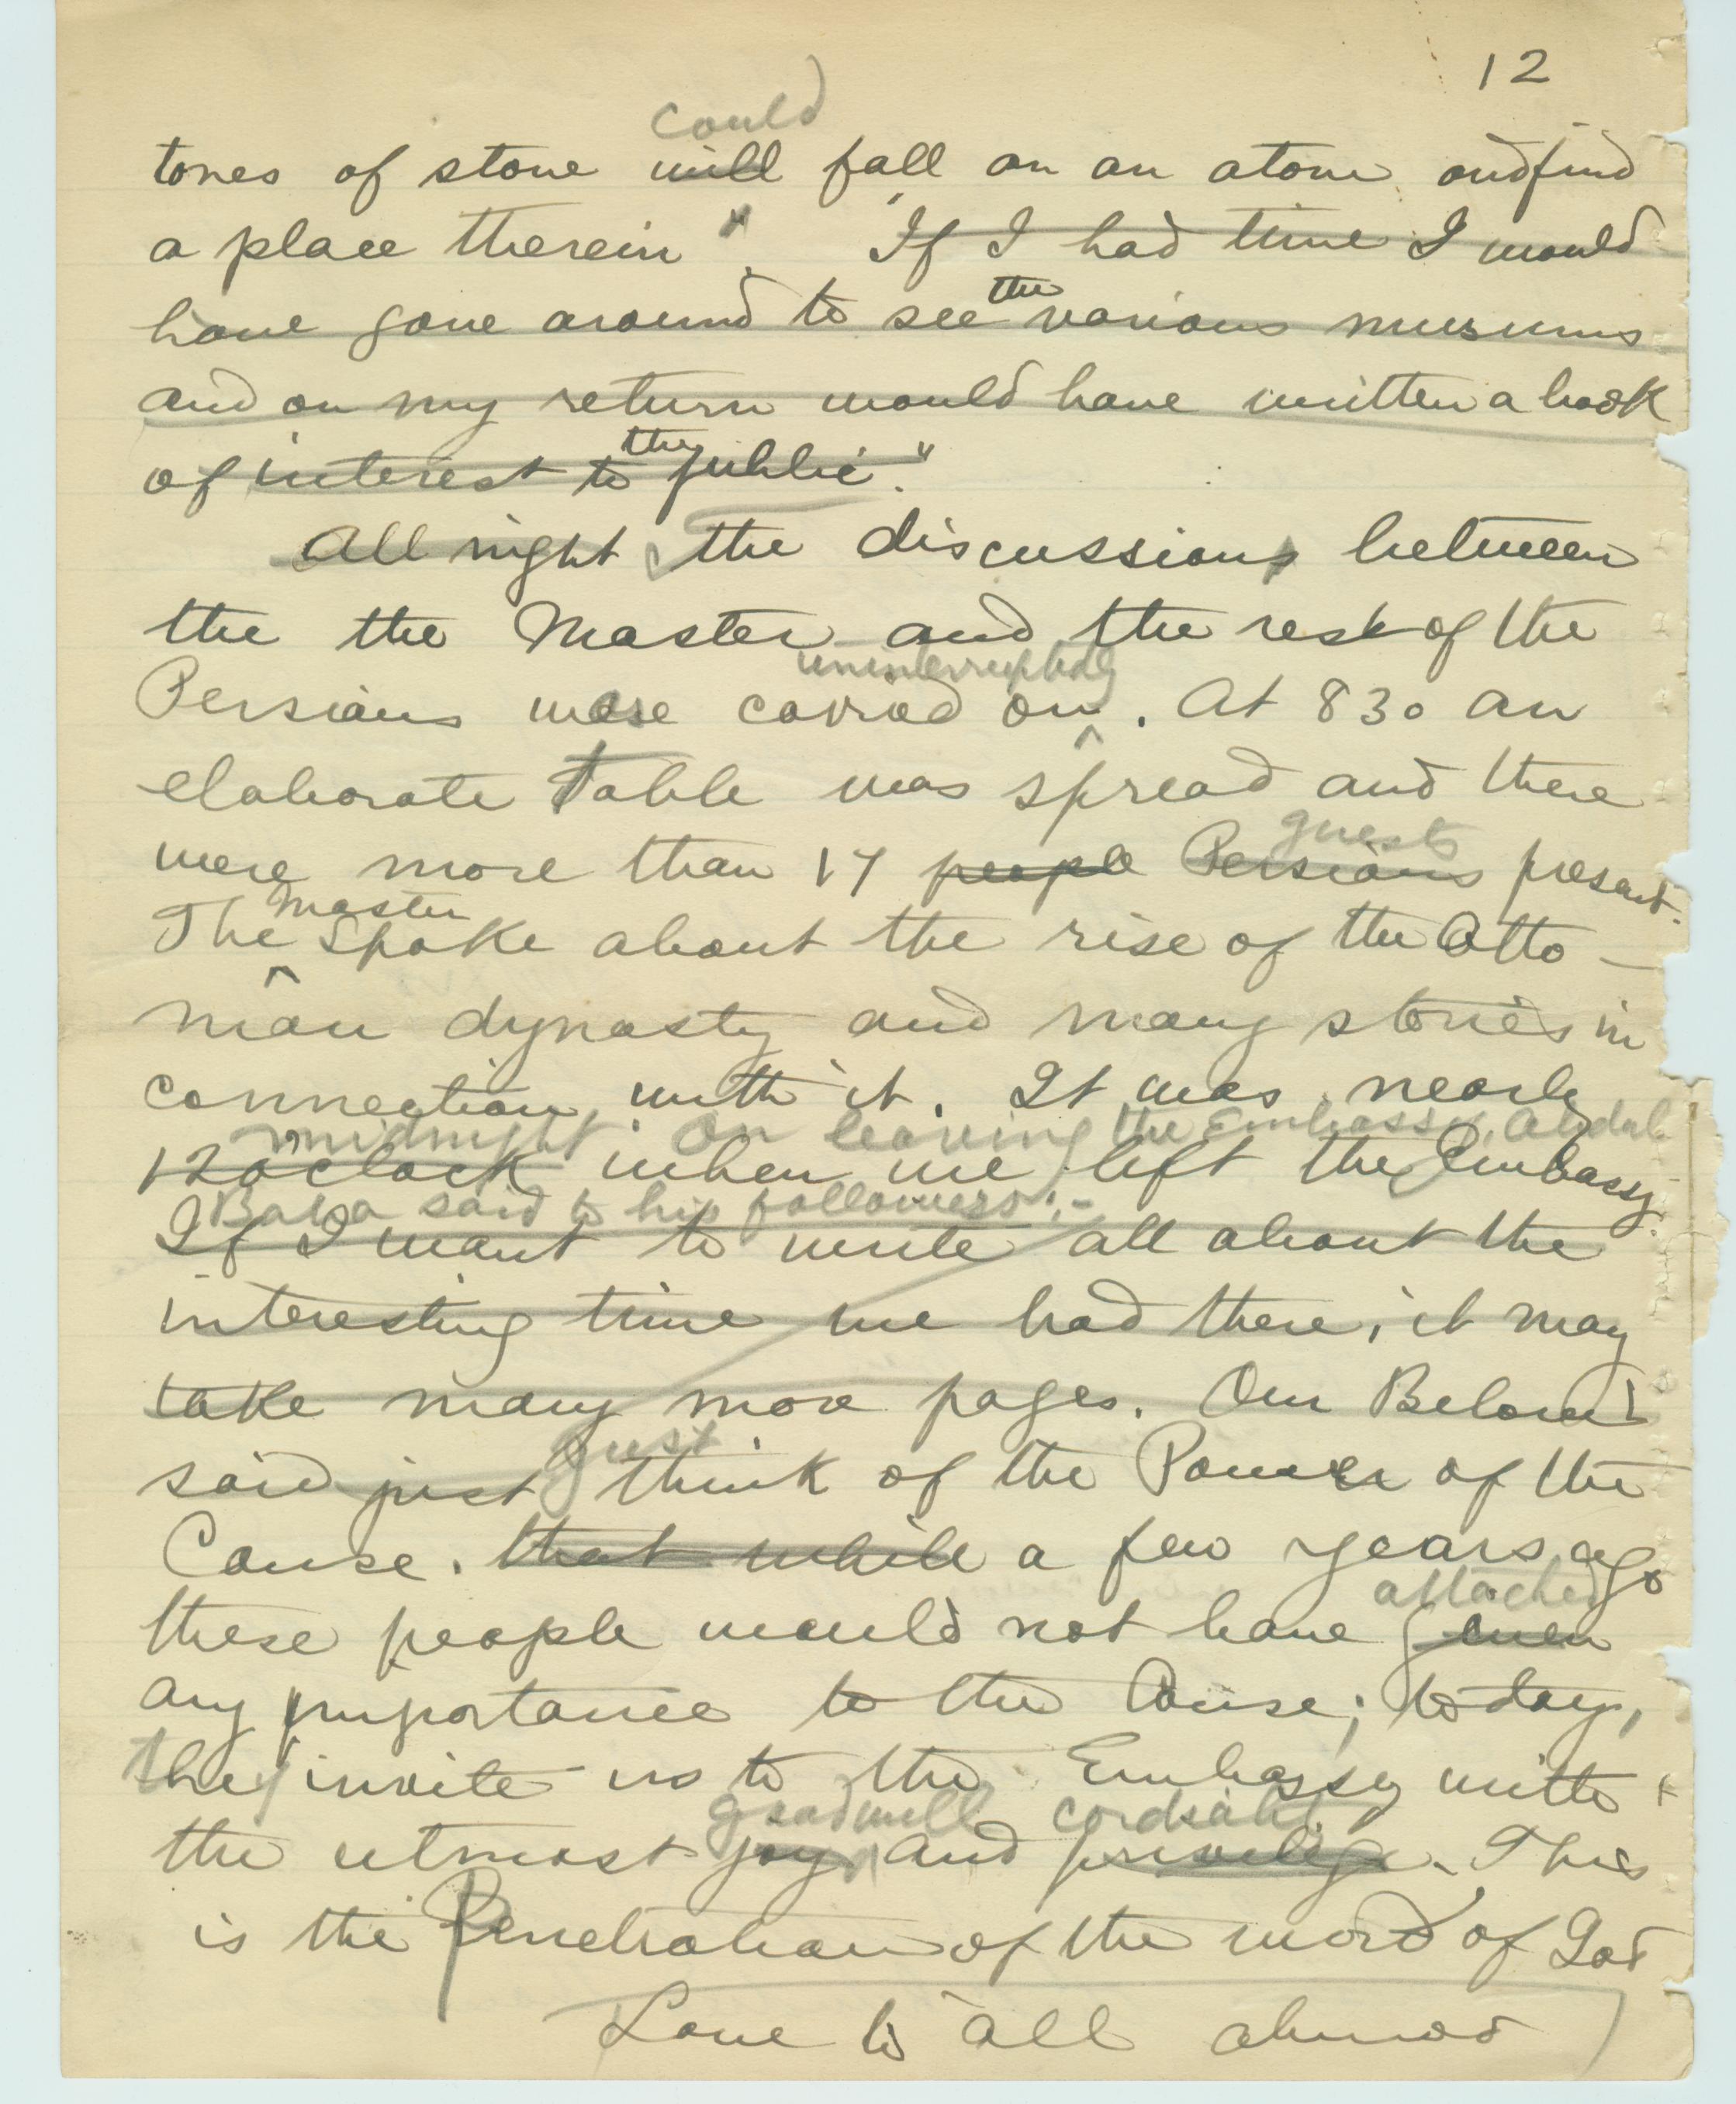 12
could
tones of stone will fall on an atom and find
a place therein". "If I had time I would
the
have gone around to see various museums
and on my return would have written a book
the
of interest to public."
All night the discussions between
the the Master and the rest of the
uninterruptedly
Persians were carried on. At 830 an
elaborate table was spread and there
guests
were more than 17 people Persians present.
Master
The ^ spoke about the rise of the Otto-
man dynasty and many stories in
connection with it. It was nearly
midnight. On leaving the Embassy, Abdul
12 o'clock when we left the Embassy.
Baha said to his followers:-
If I want to write all about the
interesting time we had there, it may
take many more pages. Our Beloved
Just
said just think of the Power of the
Cause. that while a few years ago
attached
these people would not have given
any importance to the Cause; to-day,
they invite us to the Embassy with
goodwill cordiality
the utmost joy and privilege. This
is the Penetration of the word of God
Love to all Ahmad